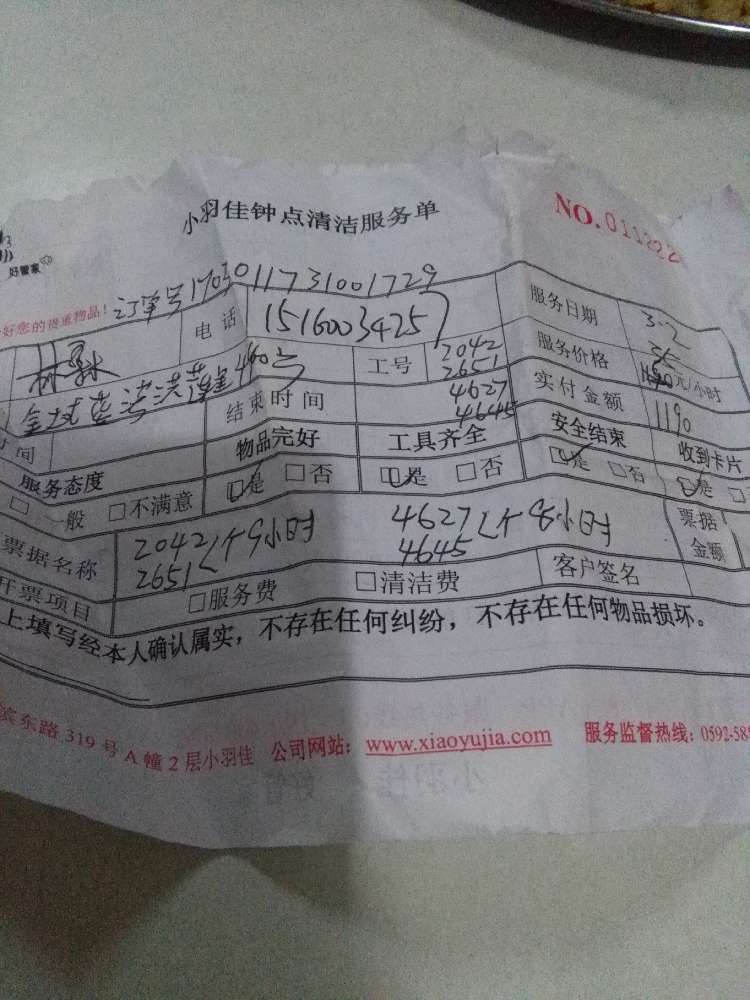 小羽佳钟点清洁服务单
NO.011222
好管家
好您的贵重物品!
订单号17030117310017​29
电话 15160034257 服务日期 3.2
工号 2042 2651 4627 4645 服务价格 35 元/小时
460号 结束时间 实付金额 1190
时间 物品完好 工具齐全 安全结束 收到卡片
服务态度 □是 □否 □是 □否 □是 □否 □是 □
□一般 □不满意
票据名称 2042 2651 个9小时 4627 4645 个8小时 票据金额
开票项目 □服务费 □清洁费 客户签名
上填写经本人确认属实,不存在任何纠纷,不存在任何物品损坏。
滨东路319号A幢2层小羽佳 公司网站:www.xiaoyujia.com 服务监督热线:0592-588